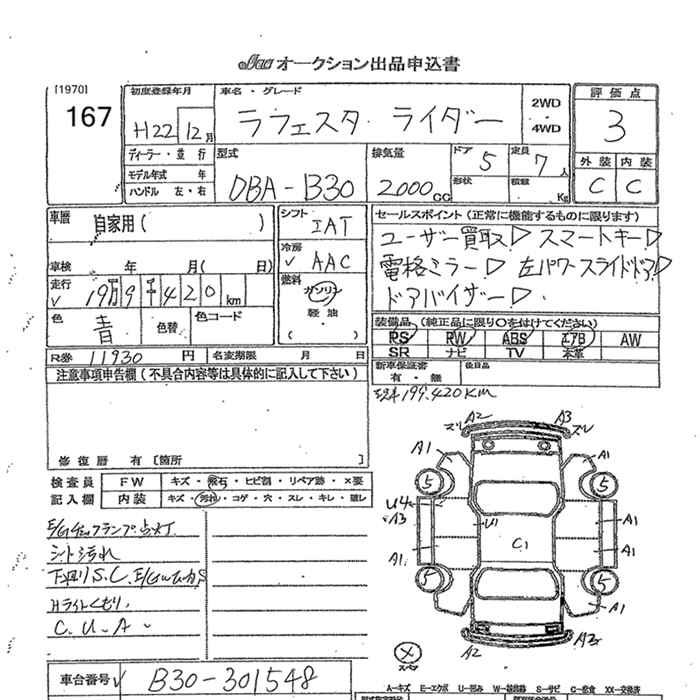 JAA オークション出品申込書
[1970]
167
初度登録年月
H22 12月
車名・グレード
ラフェスタ ライダー
2WD
4WD
評価点
3
外装 内装
C C
ディーラー・並行
モデル年式 年
ハンドル 左・右
型式
DBA-B30
排気量
2000cc
ドア 5
形状
定員 7人
積載 Kg
車歴 自家用( )
車検 年 月( 日)
走行 19万9千420km
色 青
色替
色コード
シフト IAT
冷房 AAC
燃料 ガソリン
軽油
( )
セールスポイント(正常に機能するものに限ります)
ユーザー買取▷ スマートキー▷
電格ミラー▷ 左パワースライドドア▷
ドアバイザー▷
装備品(純正品に限り○を付けてください)
PS PW ABS エアB AW
SR ナビ TV 本革
新車保証書
有・無
後日品
R券 11930円
名変期限 月 日
注意事項申告欄(不具合内容等は具体的に記入して下さい)
修復歴 有 [箇所 ]
199,420KM
検査員
記入欄
FW キズ・飛石・ヒビ割・リペア跡・X要
内装 キズ・汚れ・コゲ・穴・スレ・キレ・破レ
シート汚れ
Hライトくもり
C.U.A
A2 A3
スリ スレ
A1 A1
5 5
U4
A3
U1
A1
C1
A1 A1
5 5
A1
A2 A3
車台番号 B30-301548
A=キズ E=エクボ U=凹み W=補修跡 S=サビ C=腐食 XX=交換済